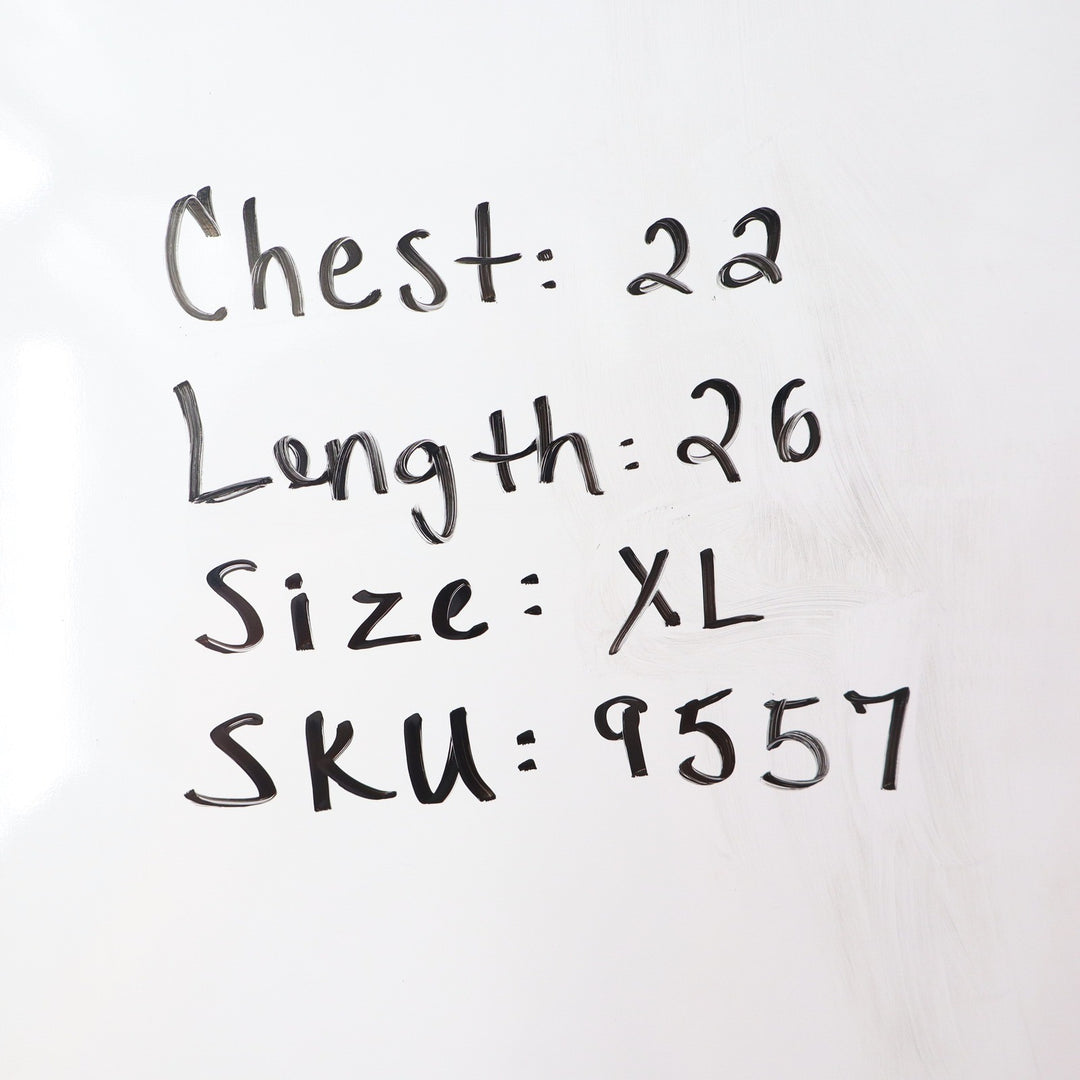 Chest: 22
Length: 26
Size: XL
SKU: 9557